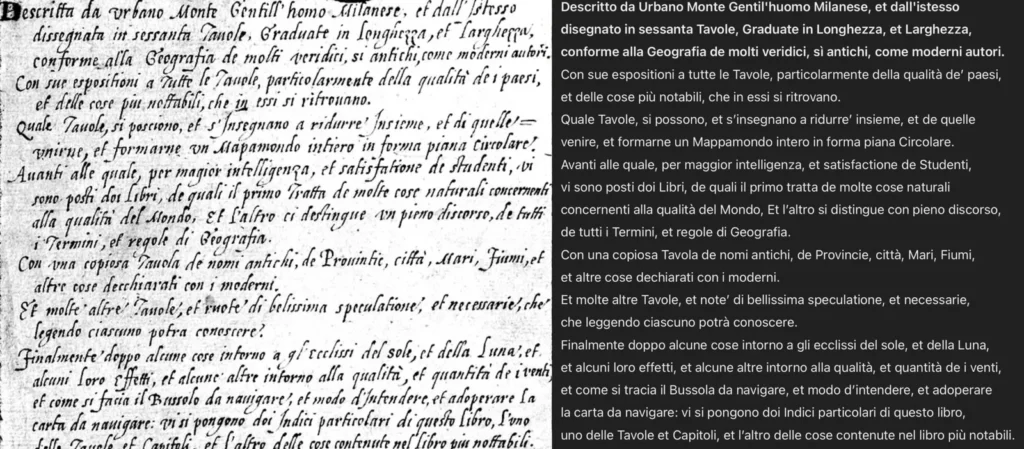 Descritta da vrbano Monte Gentill'homo Milanese, et dall'Istesso
dissegnata in sessanta Tavole, Graduate in Longhezza, et Larghezza,
conforme alla Geografia de molti veridici, si antichi, come moderni autori.
Con sue espositioni a Tutte le Tavole, particolarmente della qualità de i paesi,
et delle cose piu nottabili, che in essi si ritrovano.
Quale Tavole, si posciono, et s'Insegnano a ridurre' Insieme, et di quelle=
vnirne, et formarne vn Mapamondo intiero in forma piana circolare.
Auanti alle quale, per magior intelligenza, et satisfatione de studenti, vi
sono posti doi Libri, de quali il primo Tratta de molte cose naturali concernenti
alla qualità del Mondo, Et l'altro ci destingue vn pieno discorso, de tutti
i Termini, et regole di Geografia.
Con vna copiosa Tauola de nomi antichi, de Prouintie, città, Mari, Fiumi, et
altre cose decchiarati con i moderni.
Et molte altre' Tauole', et ruote' di belissima speculatione', et necessarie, che'
legendo ciascuno potra conoscere.
Finalmente' doppo alcune cose intorno a gl'ecclissi del sole, et della Luna, et
alcuni loro effetti, et alcune altre intorno alla qualità, et quantità de i venti,
et come si facia il Bussolo da nauigare, et modo d'Intendere, et adoperare La
carta da nauigare: vi si pongono doi Indici particolari di questo Libro, l'uno
delle Tauole et Capitoli, et l'altro delle cose contenute nel libro piu nottabili.
Descritto da Urbano Monte Gentil'huomo Milanese, et dall'istesso
disegnato in sessanta Tavole, Graduate in Longhezza, et Larghezza,
conforme alla Geografia de molti veridici, sì antichi, come moderni autori.
Con sue espositioni a tutte le Tavole, particolarmente della qualità de’ paesi,
et delle cose più notabili, che in essi si ritrovano.
Quale Tavole, si possono, et s’insegnano a ridurre’ insieme, et de quelle
venire, et formarne un Mappamondo intero in forma piana Circolare.
Avanti alle quale, per maggior intelligenza, et satisfactione de Studenti,
vi sono posti doi Libri, de quali il primo tratta de molte cose naturali
concernenti alla qualità del Mondo, Et l’altro si distingue con pieno discorso,
de tutti i Termini, et regole de Geografia.
Con una copiosa Tavola de nomi antichi, de Provincie, città, Mari, Fiumi,
et altre cose dechiarati con i moderni.
Et molte altre Tavole, et note’ di bellissima speculatione, et necessarie,
che leggendo ciascuno potrà conoscere.
Finalmente doppo alcune cose intorno a gli ecclissi del sole, et della Luna,
et alcuni loro effetti, et alcune altre intorno alla qualità, et quantità de i venti,
et come si tracia il Bussola da navigare, et modo d’intendere, et adoperare
la carta da navigare: vi si pongono doi Indici particolari di questo libro,
uno delle Tavole et Capitoli, et l’altro delle cose contenute nel libro più notabili.